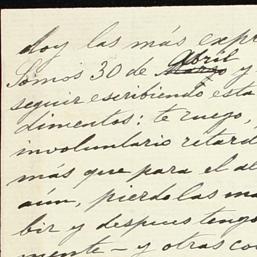 doy las más expr
Abril
Somos 30 de Marzo y
seguir escribiendo esta
dimentos; te ruego,
involuntario retard
más que para el al
aún, pierdo las ma
bir y despues tengo
mente - y otras co